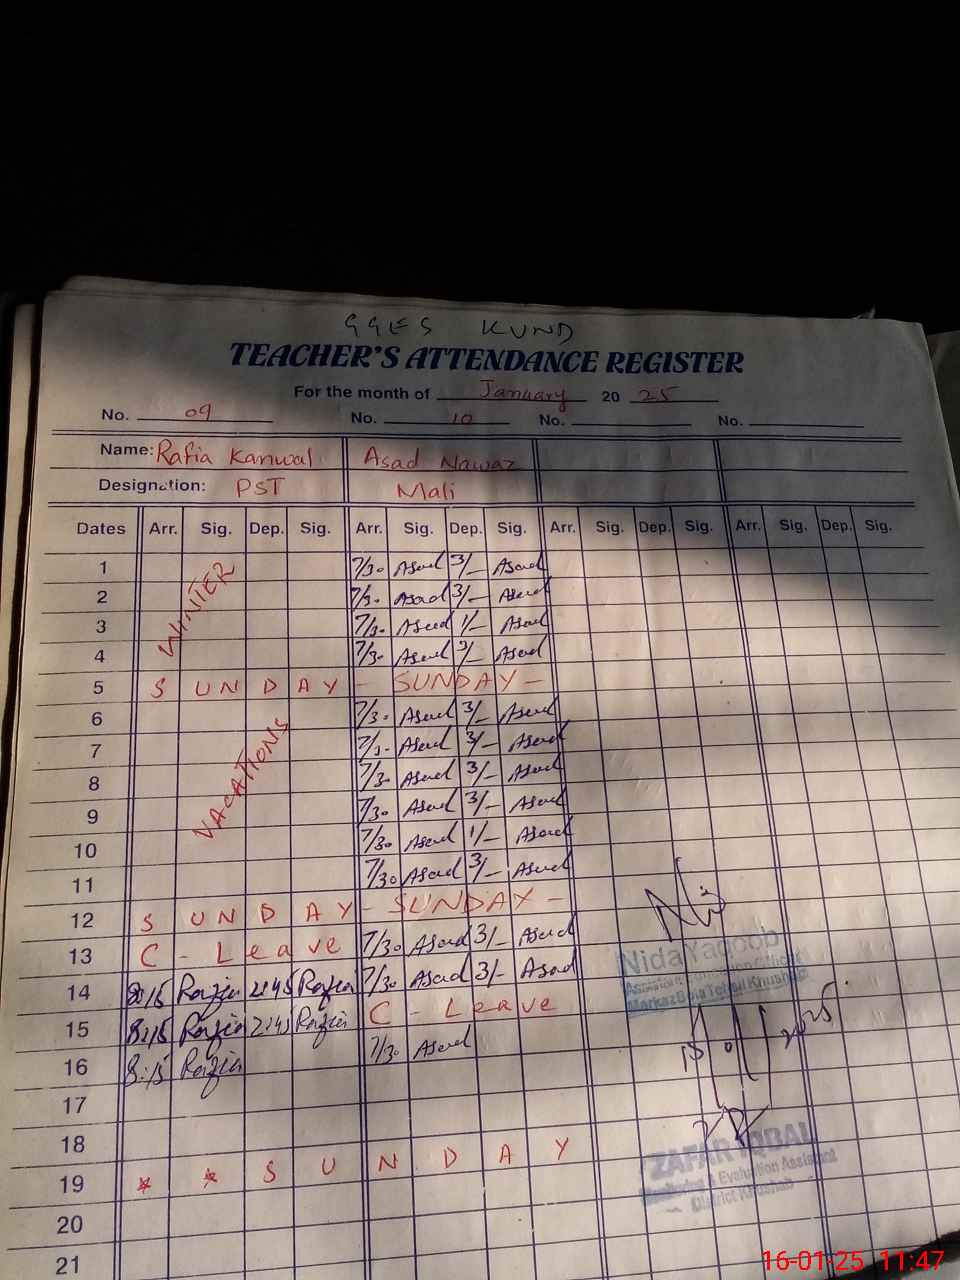 GGES KUND
TEACHER'S ATTENDANCE REGISTER
For the month of January 20 25
No. 09 No. 10 No. No.
Name: Rafia Kanwal Asad Nawaz
Designation: PST Mali
Dates Arr. Sig. Dep. Sig. Arr. Sig. Dep. Sig. Arr. Sig. Dep. Sig. Arr. Sig. Dep. Sig.
WINTER
1 7/30 Asad 3/- Asad
2 7/30 Asad 3/- Asad
3 7/30 Asad 1/- Asad
4 7/30 Asad 3/- Asad
5 SUNDAY - SUNDAY -
VACATIONS
6 7/30 Asad 3/- Asad
7 7/30 Asad 3/- Asad
8 7/30 Asad 3/- Asad
9 7/30 Asad 3/- Asad
10 7/30 Asad 1/- Asad
11 7/30 Asad 3/- Asad
12 SUNDAY - SUNDAY -
13 C - Leave 7/30 Asad 3/- Asad
14 8:15 Rafia 2:45 Rafia 7/30 Asad 3/- Asad
15 8:15 Rafia 2:45 Rafia C - Leave
16 8:15 Rafia 7/30 Asad
17
18
19 * * SUNDAY
20
21
Nida Yaqoob
Assistant Education Officer
Markaz Tehsil Khushab
15/01/2025
ZAFAR IQBAL
Monitoring & Evaluation Assistant
District Khushab
16-01-25 11:47